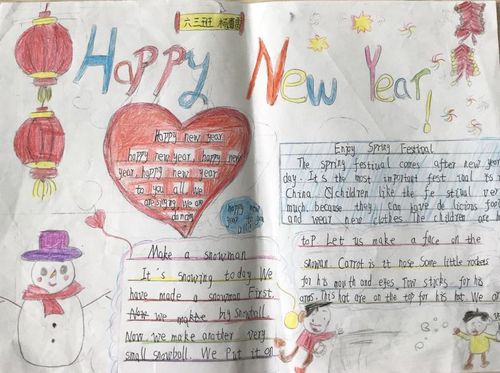 六三班
Happy New Year!
Happy new year
happy new year, happy new
year, happy new year
to you all we
are singing we are
dancing
happy new
year to you
Enjoy Spring Festival
The spring festival comes after new year
day. It's the most important fest ival is in
China. Children like the fe stival ver
much. because they can have de licious foo
and wear new clothes. The children are
Make a snowman
It's snowing today. We
have made a snowman First.
we make big snowball
Now. we make another very
small snowball. We Put it on
top. Let us make a face on the
Carrot is it nose Some little rocks
for his mouth and eyes. Two sticks for his
arms. This hat are on the top for his hat. We ar